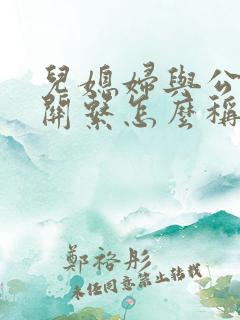 兒媳婦與公
關系怎麼稱
鄭裕彤
未經同意禁止轉載